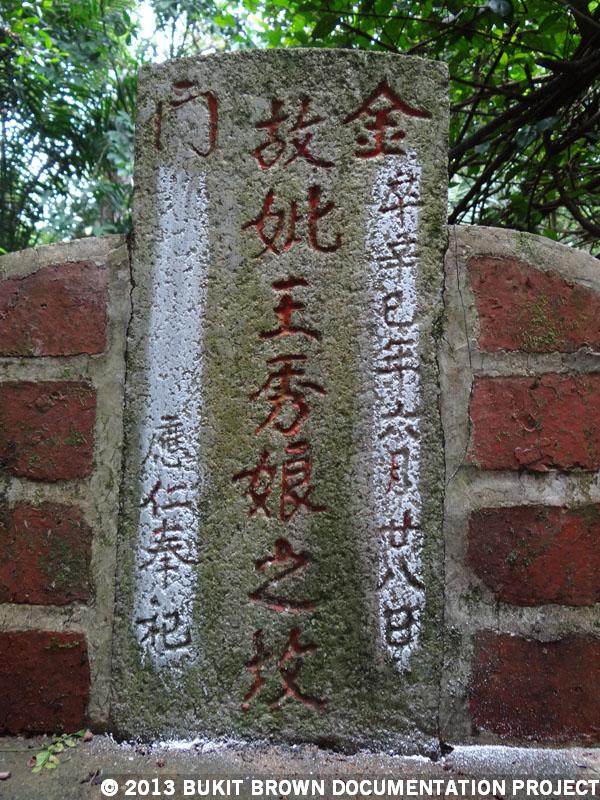 金门
卒辛巳年六月廿八日
故妣王秀娘之坟
應仁奉祀
© 2013 BUKIT BROWN DOCUMENTATION PROJECT